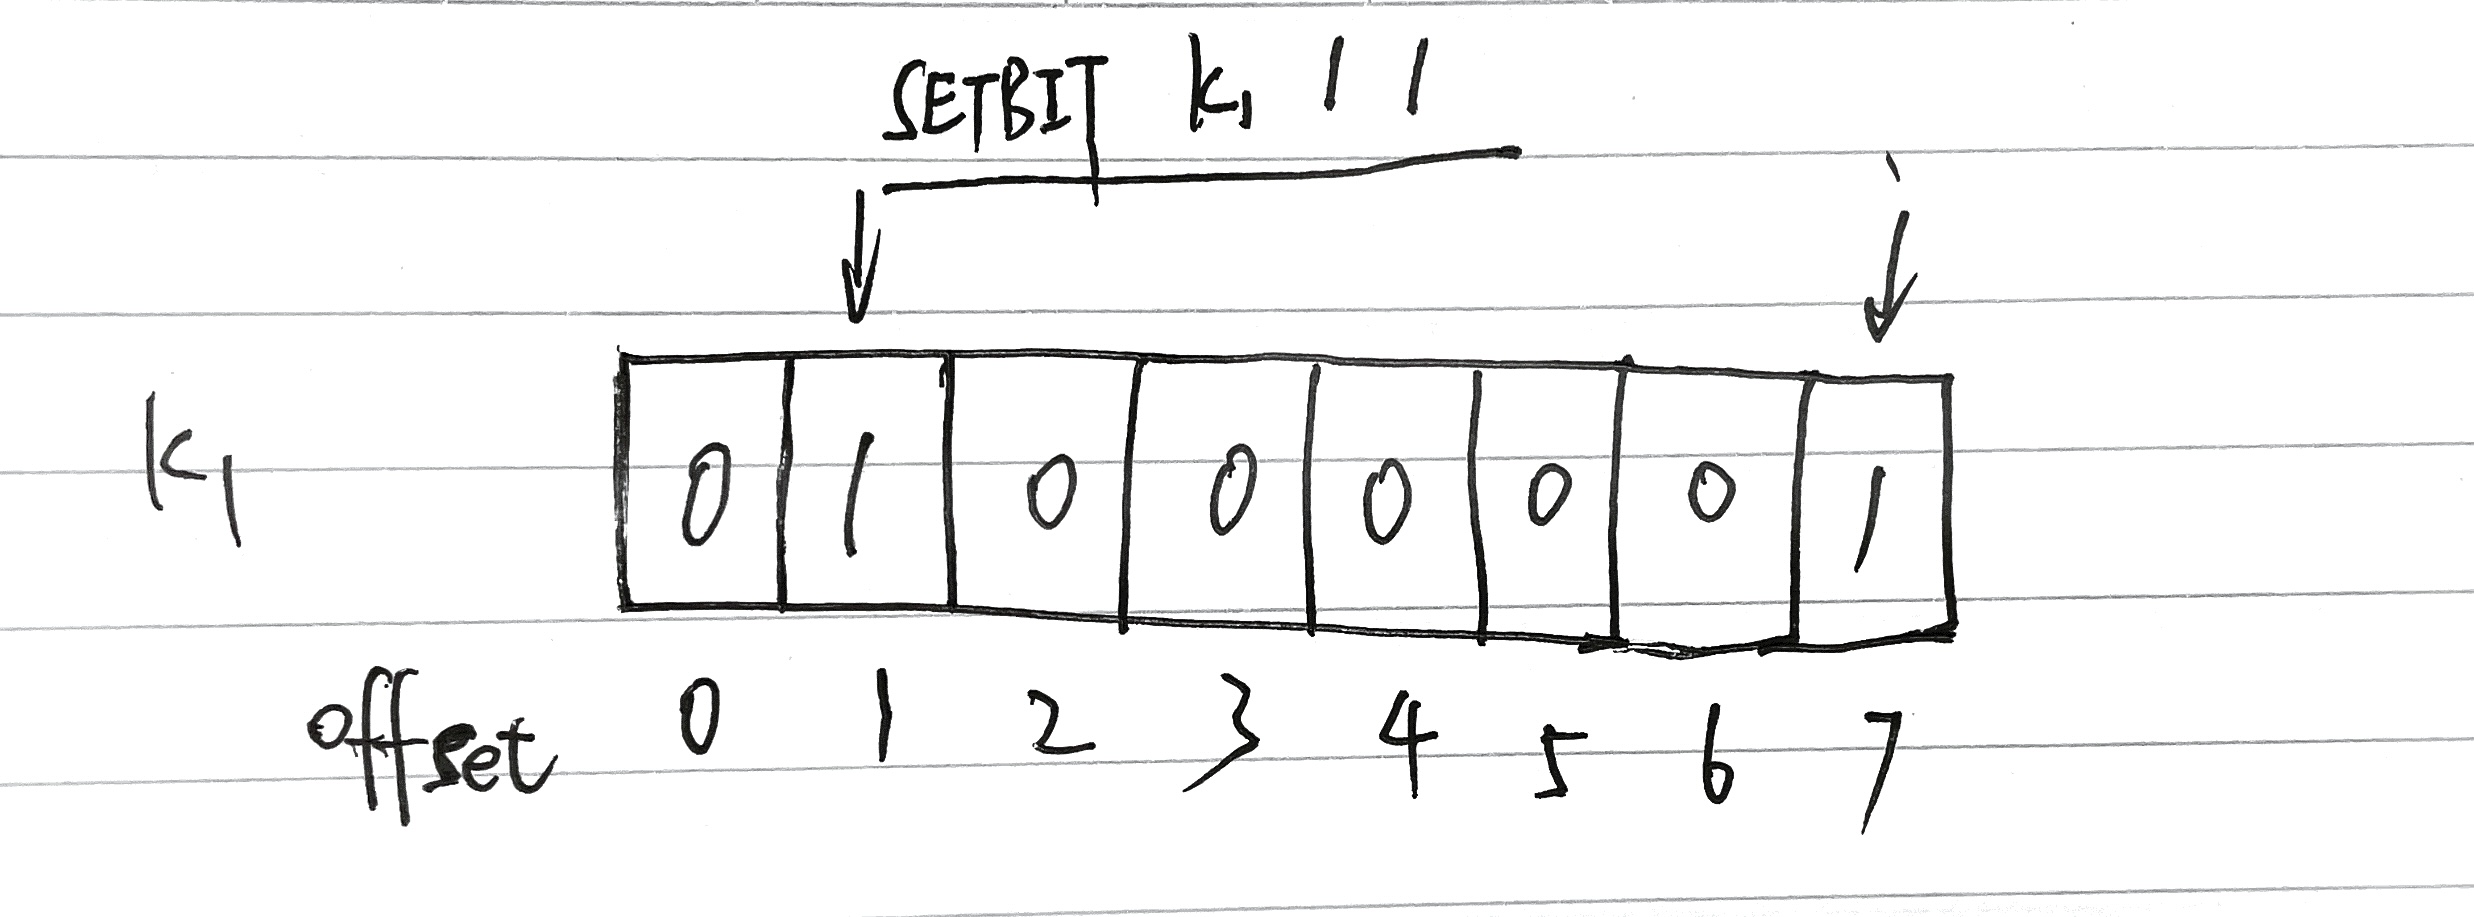 SETBIT k1 1 1
k1 0 1 0 0 0 0 0 1
offset 0 1 2 3 4 5 6 7